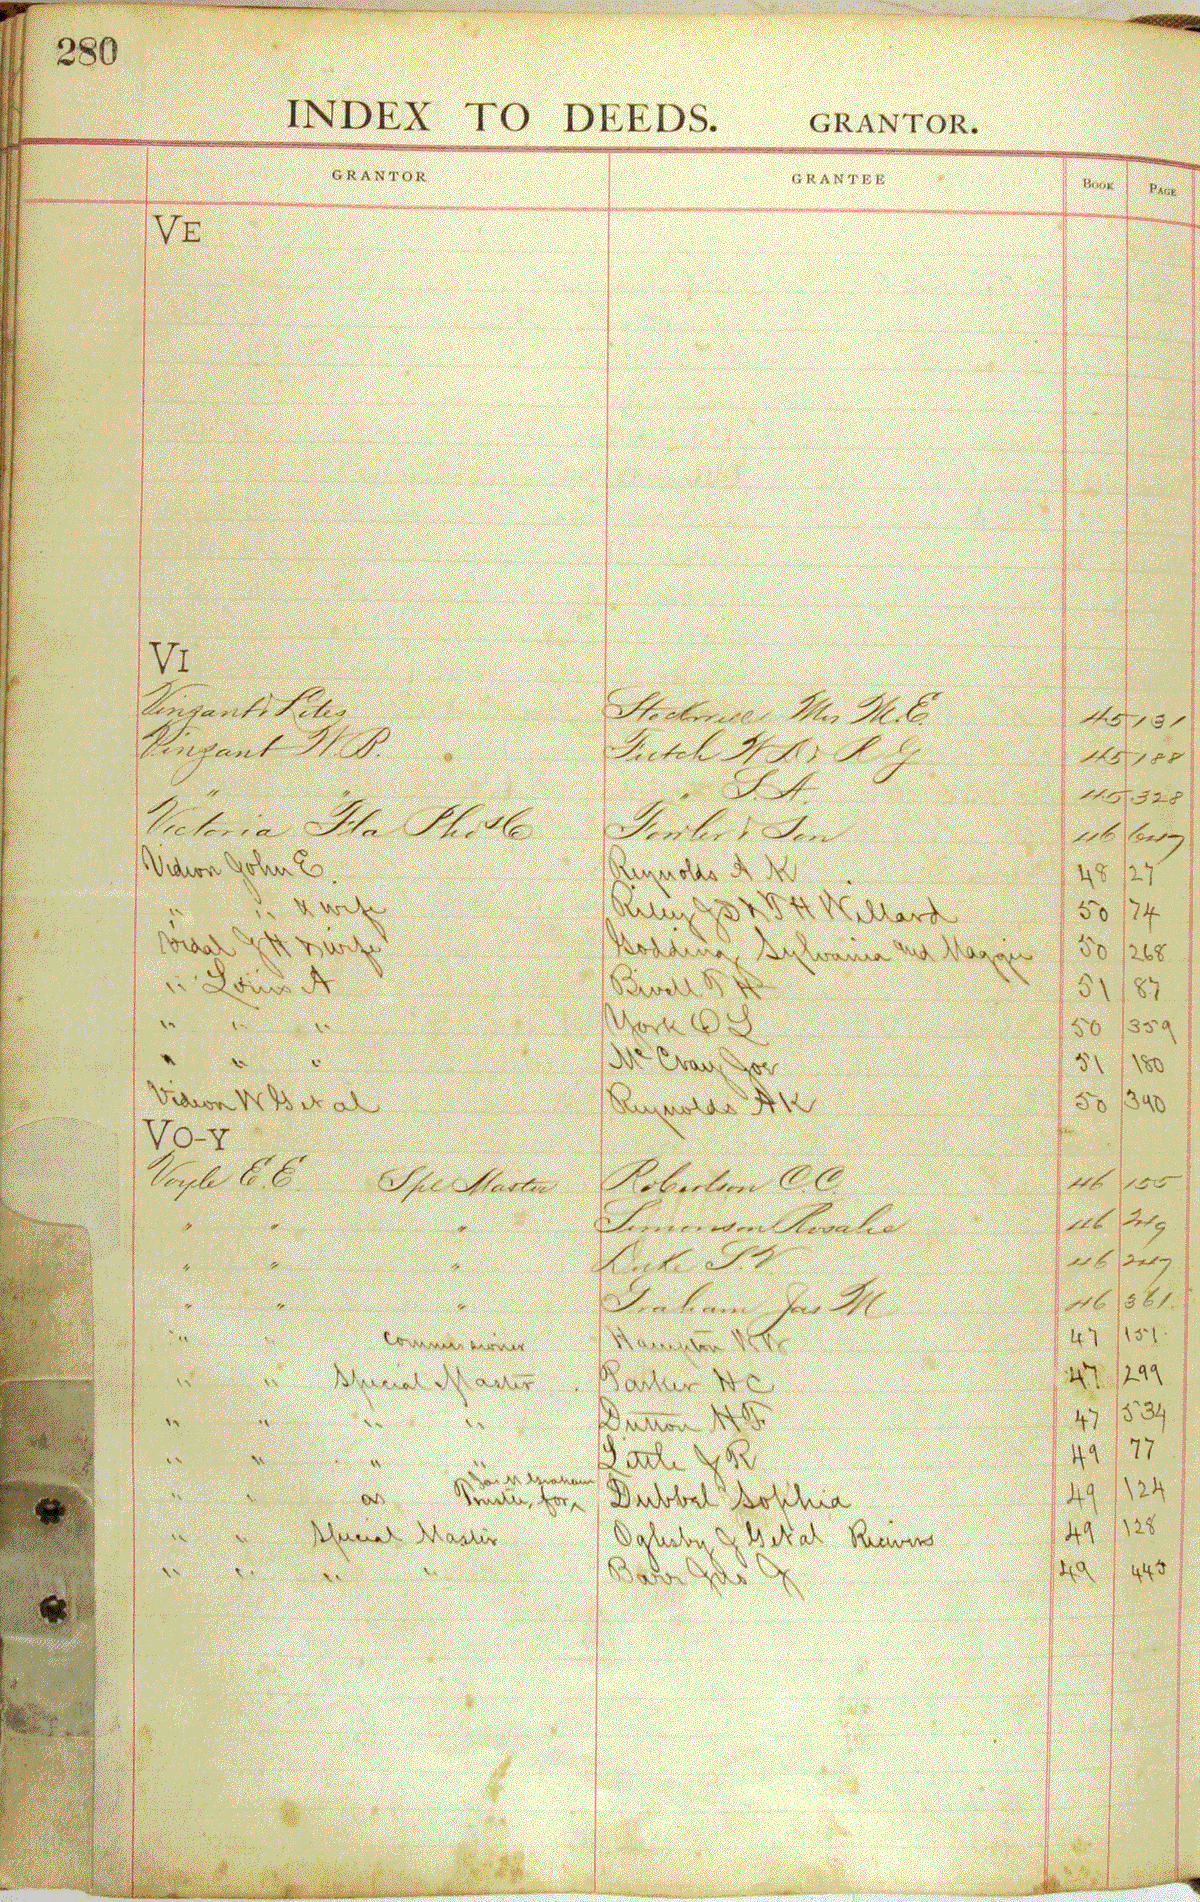 280
INDEX TO DEEDS. GRANTOR.
GRANTOR GRANTEE BOOK PAGE
VE
VI
Vinzant & Mrs M. E. 45 131
Vinzant W. B. Futch & R G 45 188
" " " S. A. 45 328
Victoria Fla Phos Co Fowler & Son 46 647
Videon John E. Reynolds A K 48 27
" " & wife Riley J D & T H Willard 50 74
Vidal J H & wife Godding, Sylvania and Maggie 50 268
" Louis A Bivell T H 51 87
" " " York O L 50 359
" " " McCray Joe 51 180
Videon W G et al Reynolds A K 50 340
VO-Y
Voyle E. E. Spe Master Robertson O. C. 46 155
" " " Simonson Rosalie 46 249
" " " Duke S. V 46 247
" " " Graham Jas M 46 361
" " Commissioner Hampton 47 151
" " Special Master Parker H C 47 299
" " " " Dutton H F 47 534
" " " " Little J R 49 77
" " as Trustee for Jas M Graham Dubbel Sophia 49 124
" " Special Master Oglesby J G et al Receivers 49 128
" " " " Barr Jas J 49 445